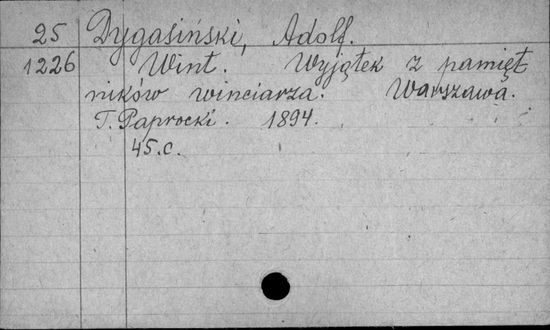 25 Dygasiński, Adolf.
1226 Wint. Wyjątek z pamięt
ników winciarza. Warszawa.
T. Paprocki. 1894.
45.c.